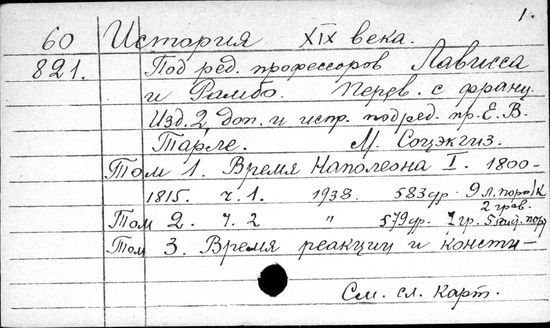 1.
60 История XIX века.
821. Под ред. профессоров Лависса
и Рамбо. Перев. с франц.
Изд. 2, доп. и испр. под ред. пр. Е. В.
Тарле. М. Соцэкгиз.
Том 1. Время Наполеона I. 1800-
1815. ч. 1. 1938. 583 стр. 9 л. порт.
2 грав.
Том 2. ч. 2 " 579 стр. 1 гр. 5 л. порт
Том 3. Время реакции и консти-
См. сл. карт.